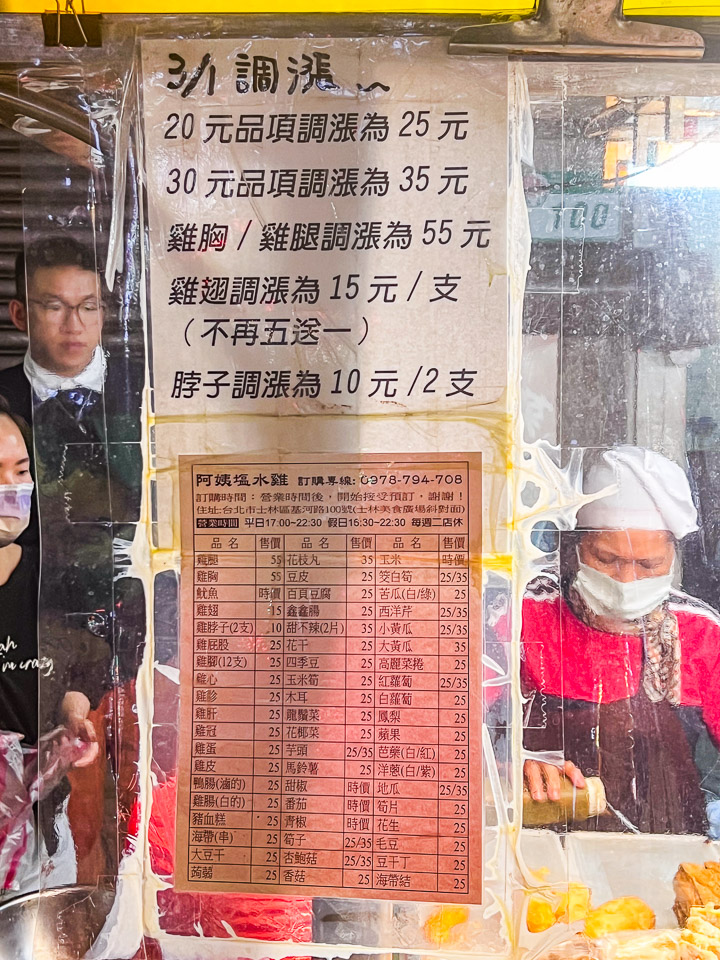 3/1 調漲~
20元品項調漲為25元
30元品項調漲為35元
雞胸/雞腿調漲為55元
雞翅調漲為15元/支
（不再五送一）
脖子調漲為10元/2支
阿姨塩水雞 訂購專線:0978-794-708
訂購時間：營業時間後，開始接受預訂，謝謝！
住址:台北市士林區基河路100號(士林美食廣場斜對面)
營業時間 平日17:00~22:30 假日16:30~22:30 每週二店休
品名 售價 品名 售價 品名 售價
雞腿 55 花枝丸 35 玉米 時價
雞胸 55 豆皮 25 筊白筍 25/35
魷魚 時價 百頁豆腐 25 苦瓜(白/綠) 25
雞翅 15 鑫鑫腸 25 西洋芹 25/35
雞脖子(2支) 10 甜不辣(2片) 35 小黃瓜 25/35
雞屁股 25 花干 25 大黃瓜 35
雞腳(12支) 25 四季豆 25 高麗菜捲 25
雞心 25 玉米筍 25 紅蘿蔔 25/35
雞胗 25 木耳 25 白蘿蔔 25
雞肝 25 龍鬚菜 25 鳳梨 25
雞冠 25 花椰菜 25 蘋果 25
雞蛋 25 芋頭 25/35 芭藥(白/紅) 25
雞皮 25 馬鈴薯 25 洋蔥(白/紫) 25
鴨腸(滷的) 25 甜椒 時價 地瓜 25/35
雞腸(白的) 25 番茄 時價 筍片 25
豬血糕 25 青椒 時價 花生 25
海帶(串) 25 筍子 25/35 毛豆 25
大豆干 25 杏鮑菇 25/35 豆干丁 25
蒟蒻 25 香菇 25 海帶結 25
100